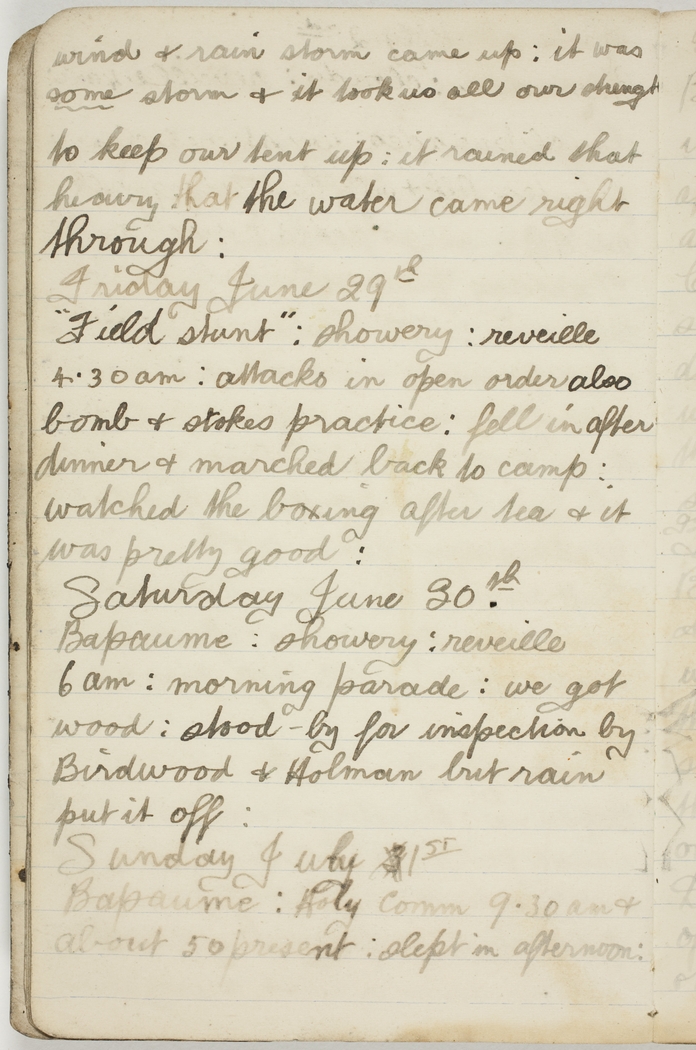 wind & rain storm came up: it was
some storm & it took us all our strengt
to keep our tent up: it rained that
heavy that the water came right
through:
Friday June 29th
"Field stunt": showery: reveille
4.30am: attacks in open order also
bomb & stokes practice: fell in after
dinner & marched back to camp:
watched the boxing after tea & it
was pretty good:
Saturday June 30th.
Bapaume: showery: reveille
6am: morning parade: we got
wood: stood-by for inspection by
Birdwood & Holman but rain
put it off:
Sunday July 1ST
Bapaume: Holy Comm 9.30am &
about 50 present: slept in afternoon: